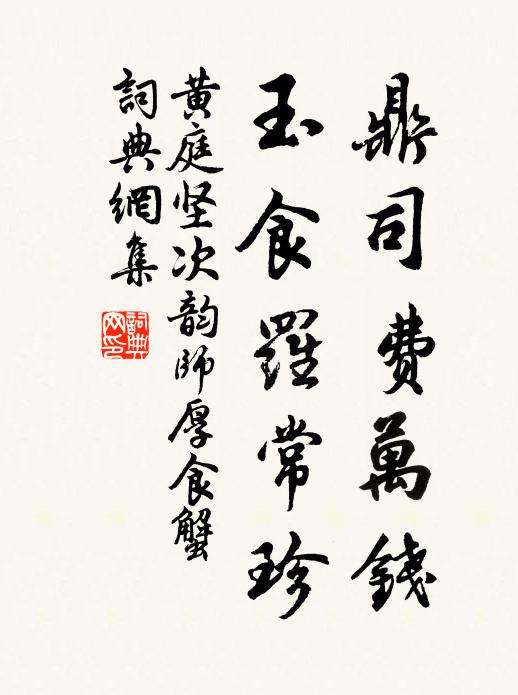 鼎司費萬錢
玉食羅常珍
黄庭坚次韵師厚食蟹
詞典網集
詞典網印